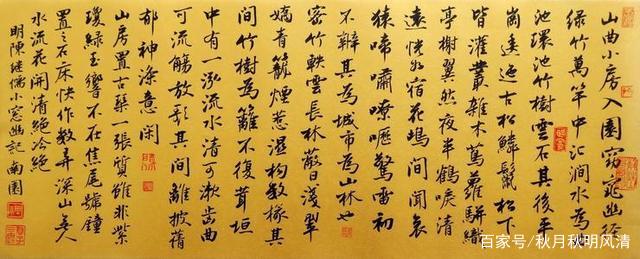 山曲小房入園窈窕幽径
綠竹萬竿中汇澗水為曲
池環池竹樹雲石其後平
崗逶迤古松鱗鬣松下
皆灌叢雜木蔦蘿駢織
亭榭翼然夜半鶴唳清
遠恍如宿花塢間聞哀
猿啼嘯嘹嚦驚雷初
不辨其為城市為山林也
密竹軼雲長林蔽日淺翠
嬌青籠煙惹濕构數椽其
間竹樹為籬不復葺垣
中有一泓流水清可漱齒曲
可流觴放歌其間離披蒨
郁神滌意閑
山房置古琴一張質雖非紫
瓊綠玉響不在焦尾號鐘
置之石床快作數弄深山無人
水流花開清絕冷絕
明陳继儒小窓幽記 南園
百家号/秋月秋明风清